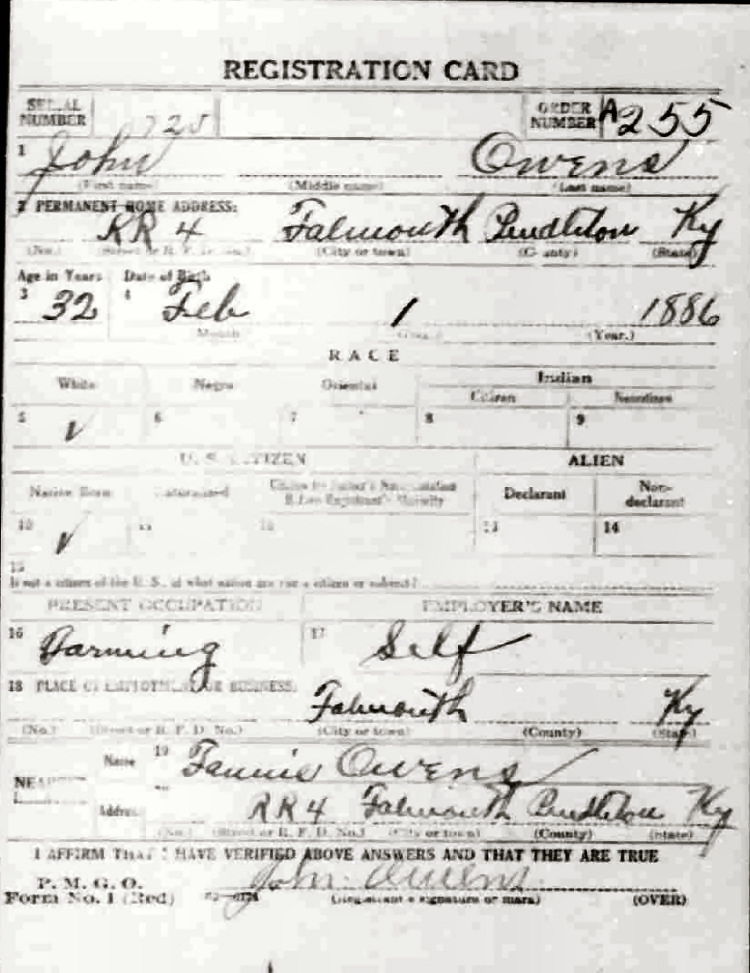 REGISTRATION CARD
SERIAL NUMBER 725 ORDER NUMBER A255
1 John Owens
(First name) (Middle name) (Last name)
2 PERMANENT HOME ADDRESS:
RR 4 Falmouth Pendleton Ky
(No.) (Street or R. F. D. No.) (City or town) (County) (State)
Age in Years Date of Birth
3 32 4 Feb 1 1886
Month Day (Year.)
RACE
White Negro Oriental Indian
Citizen Noncitizen
5 ✓ 6 7 8 9
U. S. CITIZEN ALIEN
Native Born Naturalized Citizen by Father's Naturalization Declarant Non-
Before Registrant's Majority declarant
10 ✓ 11 12 13 14
15
If not a citizen of the U. S., of what nation are you a citizen or subject?
PRESENT OCCUPATION EMPLOYER'S NAME
16 Farming 17 Self
18 PLACE OF EMPLOYMENT OR BUSINESS:
Falmouth Ky
(No.) (Street or R. F. D. No.) (City or town) (County) (State)
Name 19 Fannie Owens
NEAREST
Address RR 4 Falmouth Pendleton Ky
(No.) (Street or R. F. D. No.) (City or town) (County) (State)
I AFFIRM THAT I HAVE VERIFIED ABOVE ANSWERS AND THAT THEY ARE TRUE
P. M. G. O. John Owens
Form No. 1 (Red) (Registrant's signature or mark) (OVER)